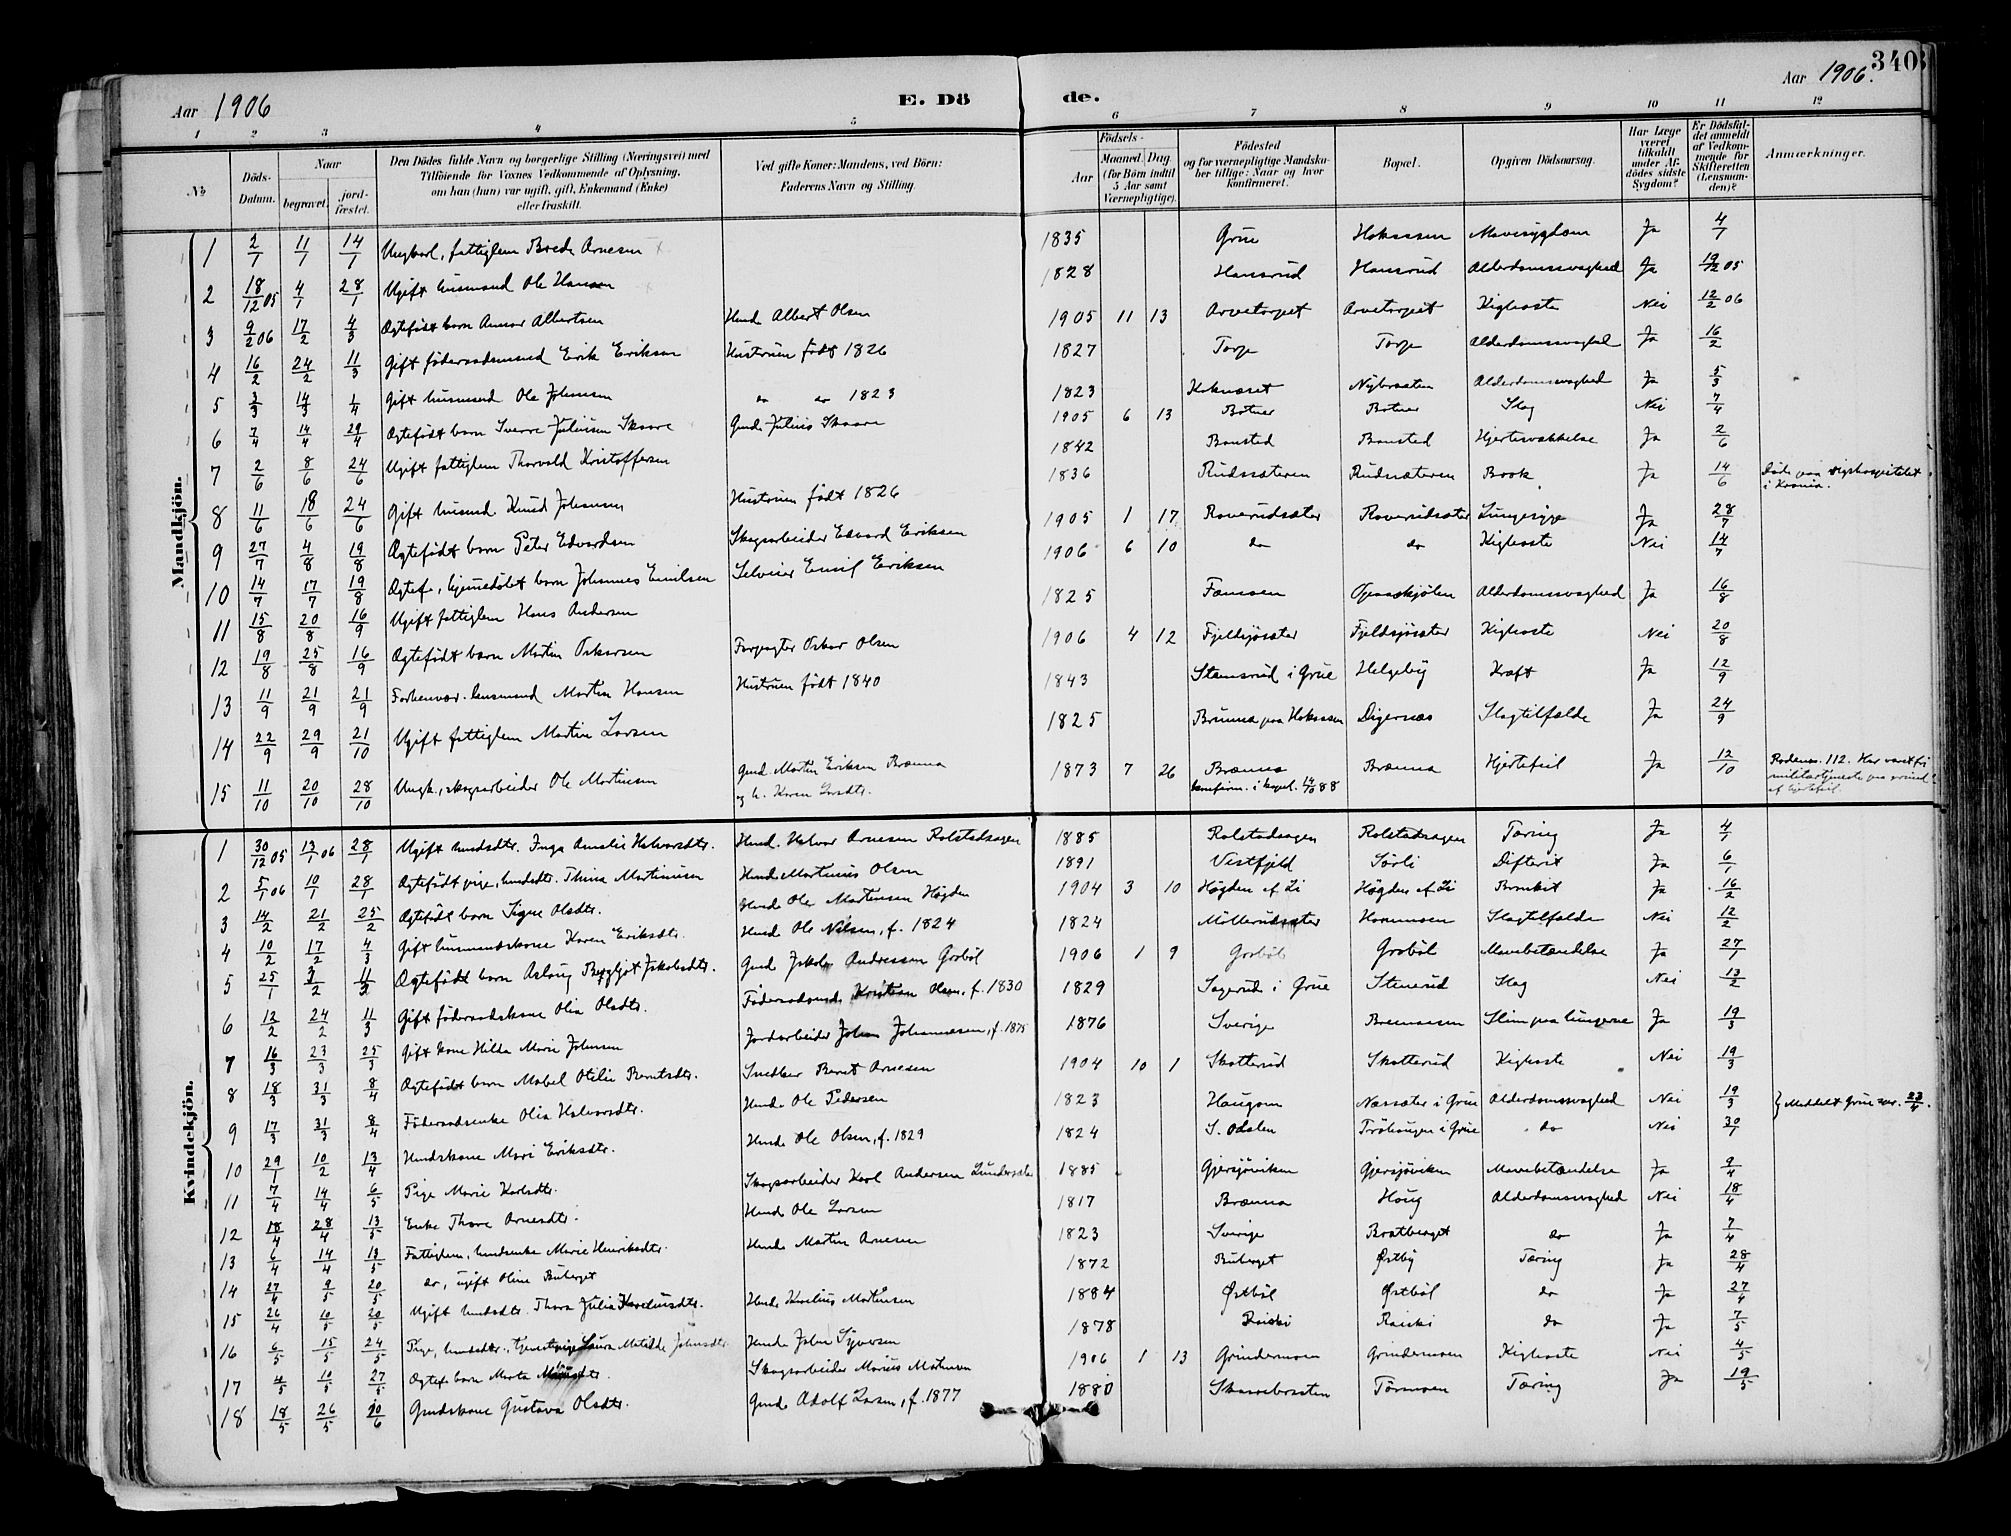 Aar 1906
E. Dö
de.
Aar 1906.
340
1 2 3 4 5 6 7 8 9 10 11 12
No
Döds-Datum.
Naar
begravet.
jord-fæstet.
Den Dödes fulde Navn og borgerlige Stilling (Næringsvei) med
Tilföiende for Voxnes Vedkommende af Oplysning,
om han (hun) var ugift, gift, Enkemand (Enke)
eller fraskilt.
Ved gifte Koner: Mandens, ved Börn:
Faderens Navn og Stilling.
Födsels-
Aar
Maaned. Dag.
(for Börn indtil
5 Aar samt
Værnepligtige).
Födested
og for værnepligtige Mandska-
ber tillige: Naar og hvor
konfirmeret.
Bopæl.
Opgiven Dödsaarsag.
Har Læge
været
tilkaldt
under Af-
dödes sidste
Sygdom?
Er Dödsfal-
det anmeldt
af Vedkom-
mende for
Skifteretten
(Lensman-
den)?
Anmærkninger.
Mandkjön.
1 2/1 11/1 14/1 Ungkarl, fattiglem Brede Arnesen 1835 Grue Hokaasen Mavesygdom Ja 4/1
2 18/12 05 4/1 28/1 Ugift husmand Ole Hansen 1828 Hansrud Hansrud Alderdomssvaghed Ja 19/12 05
3 9/2 06 17/2 4/3 Ægtefødt barn Albertsen Husmd. Albert Olsen 1905 11 13 Arvetorpet Arvetorpet Kighoste Nei 12/2 06
4 16/2 24/2 11/3 Gift föderaadsmand Erik Eriksen Hustruen født 1826 1827 Torp Torp Alderdomssvaghed Ja 16/2
5 3/3 14/3 1/4 Gift husmand Ole Johansen do do 1823 1823 Kokneset Nybraaten Alderdomssvaghed Ja 5/3
6 7/4 14/4 29/4 Ægtefødt barn Sverre Juliusen Skaare Gmd. Julius Skaare 1905 6 13 Botner Botner Slag Nei 7/4
7 2/6 8/6 24/6 Ugift fattiglem Thorvald Kristoffersen 1842 Baasted Baasted Hjertesvækkelse Ja 2/6
8 11/6 18/6 24/6 Gift husmd Knud Johansen Hustruen født 1826 1836 Rudssæteren Rudsæteren Brok Ja 14/6 Død paa rigshospitalet i Krania.
9 27/7 4/8 19/8 Ægtefødt barn Peter Edvardsen Skogsarbeider Edvard Eriksen 1905 1 17 Roverudsæter Roverudsæter Lungesyge Ja 28/7
10 14/7 17/7 19/8 Ægtef., hjemmedøbt barn Johannes Emilsen Selveier Emil Eriksen 1906 6 10 do do Kighoste Nei 14/7
11 15/8 20/8 16/9 Ugift fattiglem Hans Andersen 1825 Fæmoen Opaaskjølen Alderdomssvaghed Ja 16/8
12 19/8 25/8 16/9 Ægtefødt barn Martin Oskarsen Forpagter Oskar Olsen 1906 4 12 Fjeldsjøsæter Fjeldsjøsæter Kighoste Nei 20/8
13 11/9 21/9 21/9 Forhenvær. husmand Martin Hansen Hustruen født 1840 1843 Stemsrud i Grue Helgeby Kræft Ja 12/9
14 22/9 29/9 21/10 Ugift fattiglem Martin Larsen 1825 Brænna paa Hokaasen Digernæs Slagtilfælde Ja 24/9
15 11/10 20/10 28/10 Ungk., skogsarbeider Ole Martinsen Gmd. Martin Eriksen Brænna
og h. Karen Larsdtr. 1873 7 26 Brænna
konfirm. i kapel. 14/10 88 Brænna Hjertefeil Ja 12/10 112. Har været fri
militærtjeneste paa grund
af hjertefeil.
Kvindekjön.
1 30/12 05 13/1 06 28/1 Ugift husmdsdtr. Inga Amalie Halvorsdtr. Husmd. Halvor Arnesen Rolstadsagen 1885 Rolstadsagen Rolstadsagen Tæring Ja 4/1
2 5/1 06 10/1 28/1 Ægtefødt pige, husmdsdtr. Thina Martinusen Husmd. Martinus Olsen 1891 Vestfjeld Sørli Difterit Ja 6/1
3 14/2 21/2 25/2 Ægtefødt barn Signe Olsdtr. Husmd. Ole Martinsen Høgden 1904 3 10 Høgden af Li Høgden af Li Bronkit Ja 16/2
4 10/2 17/2 4/3 Gift husmandskone Karen Eriksdtr. Husmd. Ole Nilsen, f. 1824 1824 Møllerudsæter Horumoen Slagtilfælde Nei 12/2
5 25/1 3/2 11/2 Ægtefødt barn Aslaug Bergljot Jakobsdtr. Gmd Jakob Andreassen Grøbøl 1906 1 9 Grøbøl Grøbøl Mavebetændelse Ja 27/1
6 12/2 24/2 11/3 Gift föderaadskone Olia Olsdtr. Föderaadsmd. Kristian Olsen, f. 1830 1829 Sagerud i Grue Stenerud Slag Nei 13/2
7 16/3 23/3 25/3 Gift kone Hilda Marie Johnsen Jordarbeider Johan Johannesen, f. 1875 1876 Sverige Breenaasen Slim paa lungerne Ja 19/3
8 18/3 31/3 8/4 Ægtefødt barn Mabel Otilie Berntsdtr. Snedker Bernt Arnesen 1904 10 1 Skotterud Skotterud Kighoste Nei 19/3
9 17/3 31/3 8/4 Föderaadsenke Olia Halvorsdtr. Husmd. Ole Pedersen 1823 Haugom Næssæter i Grue Alderdomssvaghed Nei 19/3 } Meddelt Grue 23/4.
10 29/1 10/2 13/4 Husmdskone Mari Eriksdtr. Husmd. Ole Olsen, f. 1829 1824 S. Odalen Tröhaugen i Grue do Nei 30/1
11 7/4 14/4 6/5 Pige Marie Karlsdtr. Skogsarbeider Karl Andersen 1885 Gjersjøviken Gjersjøviken Mavebetændelse Ja 9/4
12 18/4 28/4 13/5 Enke Thore Arnesdtr. Husmd. Ole Larsen 1817 Brænna Haug Alderdomssvaghed Nei 18/4
13 6/4 14/4 13/5 Fattiglem, husmdsenke Marie Henriksdtr. Husmd. Martin Arnesen 1823 Sverige Bratberget do Ja 7/4
14 27/4 9/5 20/5 do, ugift Oline Buberget 1872 Buberget Østby Tæring Ja 28/4
15 26/4 10/5 20/5 Ugift husmdsdtr. Thora Julia Kareliusdtr. Husmd. Karelius Martinsen 1884 Østbøl Østbøl do Ja 27/4
16 6/5 15/5 24/5 Pige, husmdsdtr., tjenestpige Laura Matilde Johnsdtr. Husmd. John Syversen 1878 Raiski Raiski do Ja 7/5
17 4/5 10/5 27/5 Ægtef. barn Marta Skogsarbeider Marius Martinsen 1906 1 13 Grindermoen Grindermoen Kighoste Nei 4/5
18 18/5 26/5 10/6 Gmdskone Gustava Olsdtr. Gmd. Adolf Larsen, f. 1877 1880 Skaarebraaten Tørmoen Tæring Ja 19/5